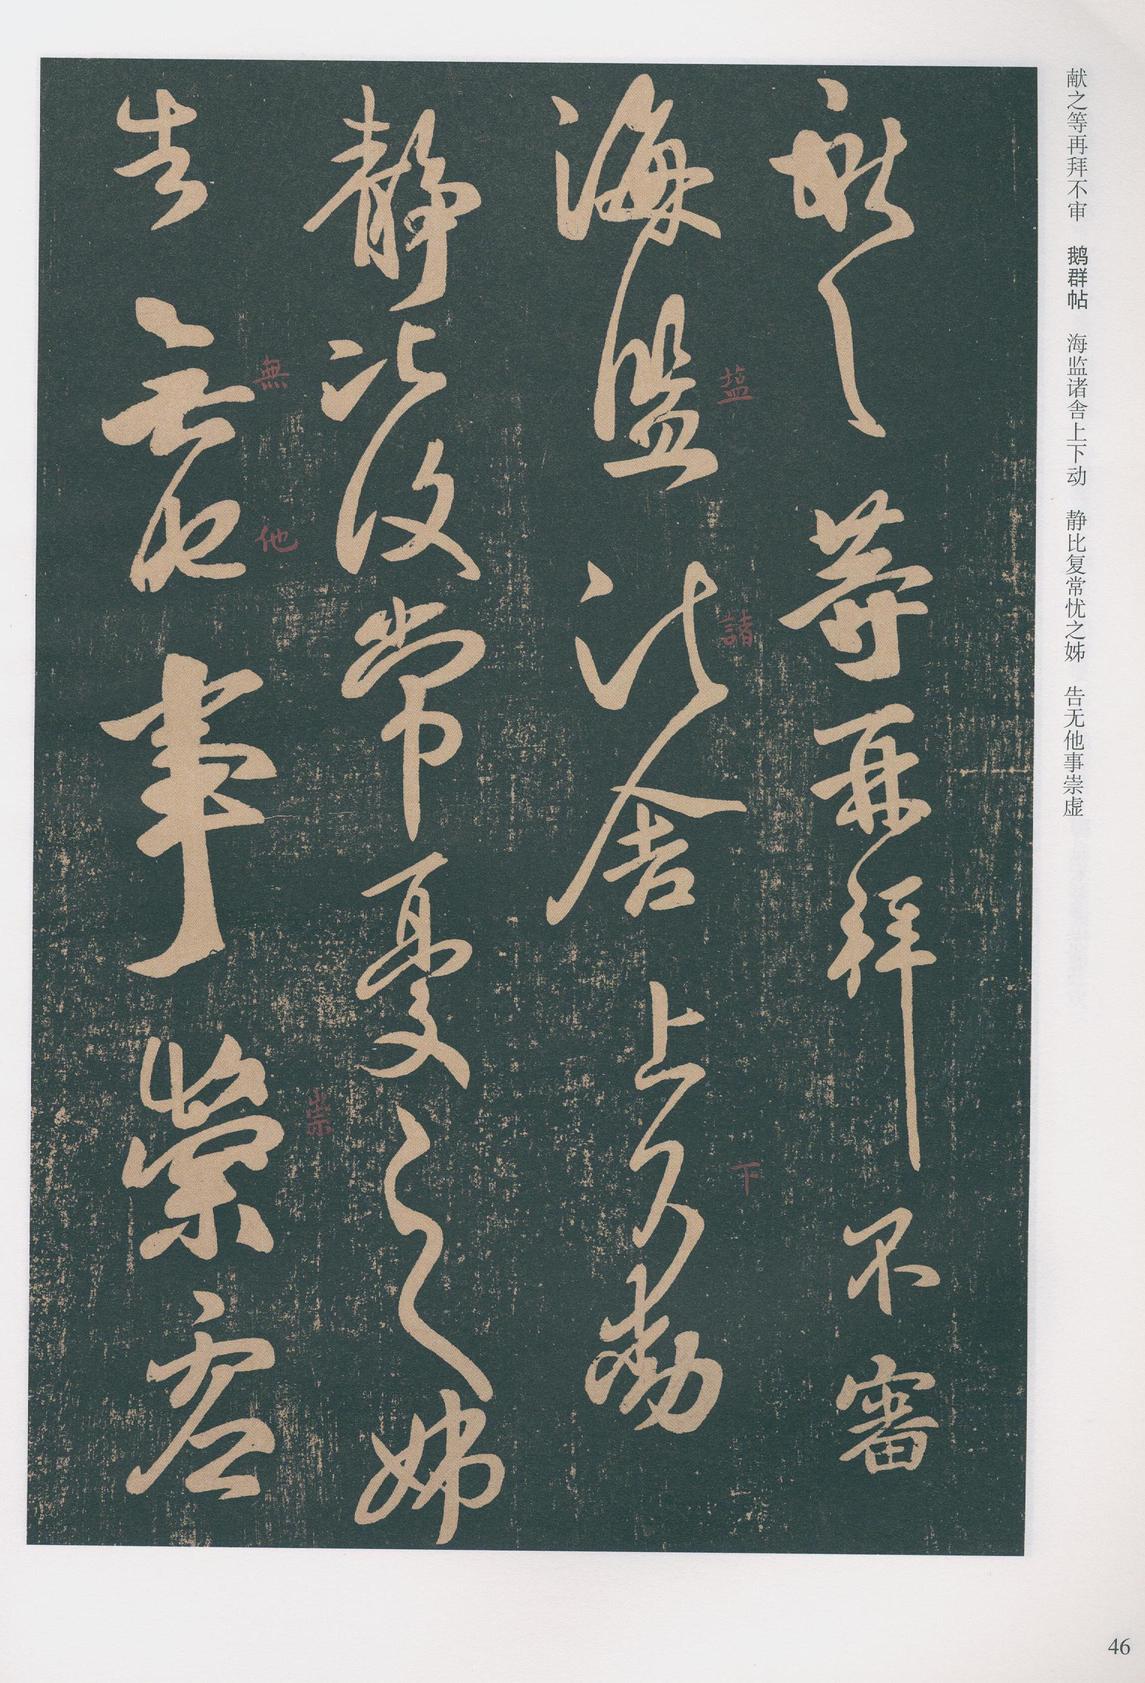 献之等再拜不审　鹅群帖　海监诸舍上下动　静比复常忧之姊　告无他事崇虚
獻之等再拜不審
海監諸舍上下動
鹽
諸
下
靜比復常憂之姊
告無他事崇虛
無
他
崇
46